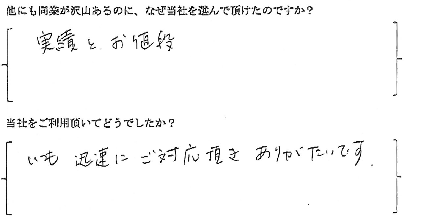 他にも同業が沢山あるのに、なぜ当社を選んで頂けたのですか？
実績と お値段
当社をご利用頂いてどうでしたか？
いも 迅速に ご対応頂き ありがたいです。